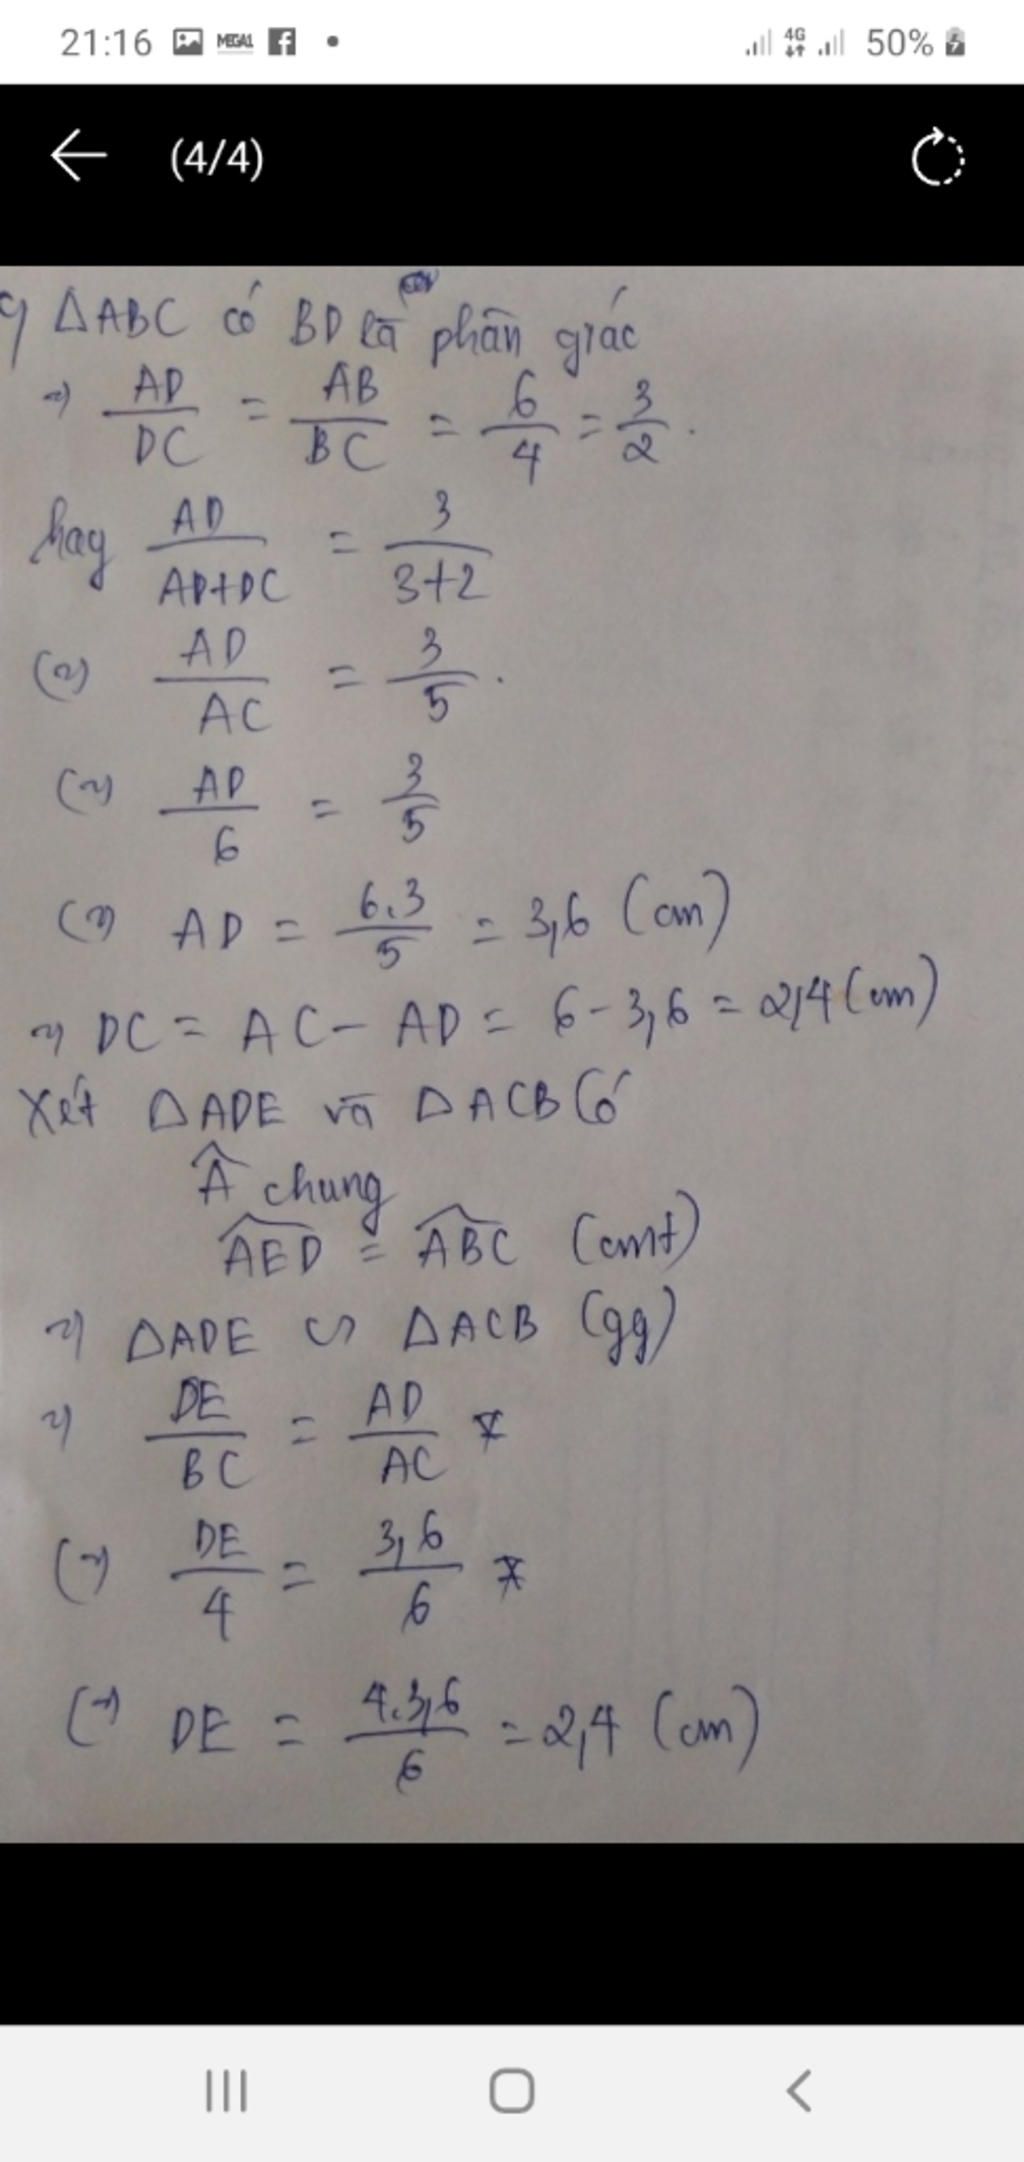 21:16 MEGA1 f • 4G 50%
(4/4)
c) ΔABC có BD là phân giác
=> AD/DC = AB/BC = 6/4 = 3/2.
hay AD/AD+DC = 3/3+2
(=) AD/AC = 3/5.
(=) AD/6 = 3/5
(=) AD = 6.3/5 = 3,6 (cm)
=> DC = AC - AD = 6 - 3,6 = 2,4 (cm)
Xét ΔADE và ΔACB có
Â chung
AED = ABC (cmt)
=> ΔADE ∽ ΔACB (gg)
=> DE/BC = AD/AC *
(=) DE/4 = 3,6/6 *
(=) DE = 4.3,6/6 = 2,4 (cm)